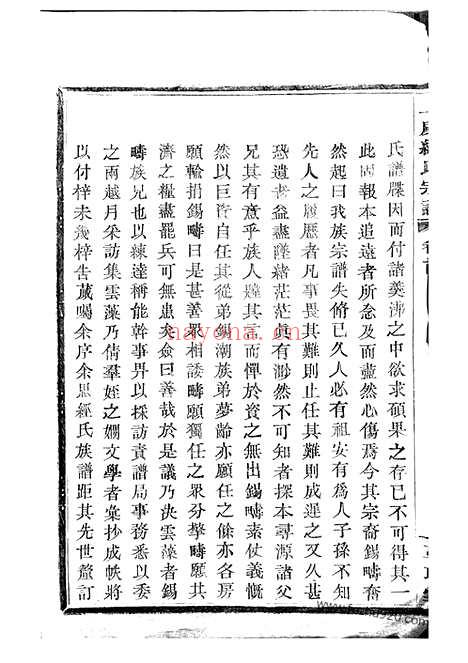 氏譜牒因而付諸羹沸之中欲求碩果之存已不可得其一
此固報本追遠者所念及而盡然心傷焉今其宗裔錫疇奮
然起曰我族宗譜失俯已久人必有祖安有為人子孫不知
先人之履歷者凡事畏其難則止任其難則成遲之又久誠
恐遺者益盡墜緒茫茫真有渺然不可知者探本尋源諸父
兄其有意乎族人韙其言而憚於資之無出錫疇素仗義慨
然以巨資自任其從弟錫潮族弟夢齡亦願任之餘亦各房
願輸捐錫疇曰是甚善眾相諉疇願獨任之眾分擎疇願共
濟之糧盡罷兵可無患矣僉曰善哉於是議乃決雲藻者錫
疇族兄也以練達稱能幹事畀以採訪責譜局事務悉以委
之雨越月采訪集雲藻乃倩羣姪之嫻文學者彙抄成帙將
以付梓未幾梓告蕆囑余序余思經氏族譜距其先世釐訂
nayona.cn